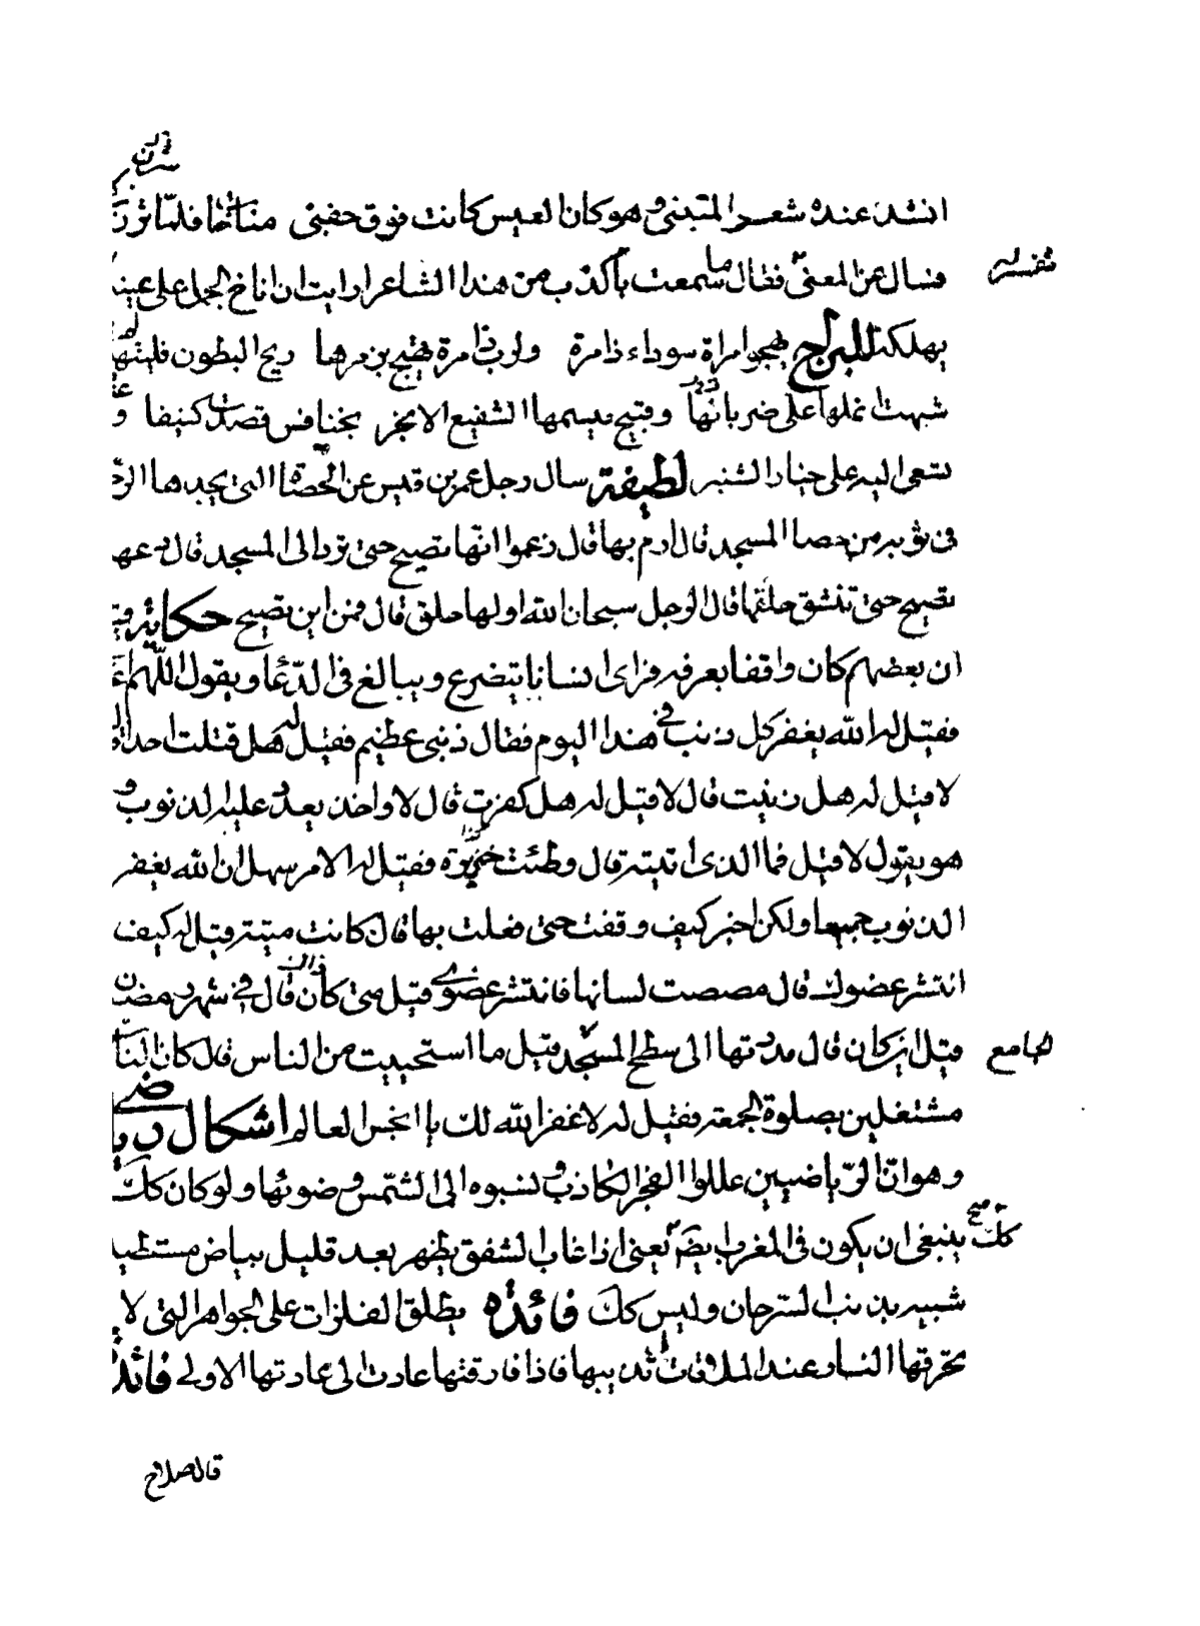 انشد عنده شعر المتنبي وهو كان العيس كانت فوق جفني مناخا فلما ثرن
تفسيره
فسال عن المعنى فقال ما سمعت باكذب من هذا الشاعر ارايت ان اناخ الجمل على عينه
يهلكه للسراج يهجو امراة سوداء زامرة ولرب زامرة يهيج بزمرها ريح البطون فليتها لم
شبهت انملها على ضربانها وقبيح مبسمها الشنيع الابخر بخنافس قصدت كنيفا و
تسعى اليه على خيار الشنبر لطيفة سال رجل عمر بن قيس عن الحصاة التي يجدها الر
في ثوبه من حصا المسجد قال ارم بها قال زعموا انها تصيح حتى ترد الى المسجد قال دعها
تصيح حتى تنشق حلقها قال الرجل سبحان الله اولها حلق قال فمن اين تصيح حكاية
ان بعضهم كان واقفا بعرفه فراى انسانا يتضرع ويبالغ في الدعا ويقول اللهم
فقيل له الله يغفر كل ذنب في هذا اليوم فقال ذنبي عظيم فقيل له هل قتلت احدا قا
لا قيل له هل زنيت قال لا قيل له هل كفرت قال لا واخذ يعد عليه الذنوب و
هو يقول لا قيل فما الذي اتيته قال وطئت خنزيرة فقيل له الامر سهل ان الله يغفر
الذنوب جميعا ولكن اخبر كيف وقفت حتى فعلت بها قال كانت ميتة قيل له كيف
انتشر عضوك قال مصصت لسانها فانتشر عضوي قيل متى كان ذلك قال في شهر رمضان
الجامع
قيل اين كان قال مددتها الى سطح المسجد قيل ما استحييت من الناس قال كان الناس
مشتغلين بصلوة الجمعة فقيل له لا غفر الله لك يا انجس العالم اشكال رياضي
وهو ان الرياضيين عللوا الفجر الكاذب ونسبوه الى الشمس وضوئها ولو كان كك
كك ينبغي ان يكون في المغرب ايضا يعني اذا غاب الشفق يظهر بعد قليل بياض مستطيل
شبيه بذنب السرحان وليس كك فائدة يطلق الفلزات على الجواهر التي لا
تحرقها النار عند الملاقات بل تذيبها فاذا فارقتها عادت الى عادتها الاولى فائدة
قال صلاح